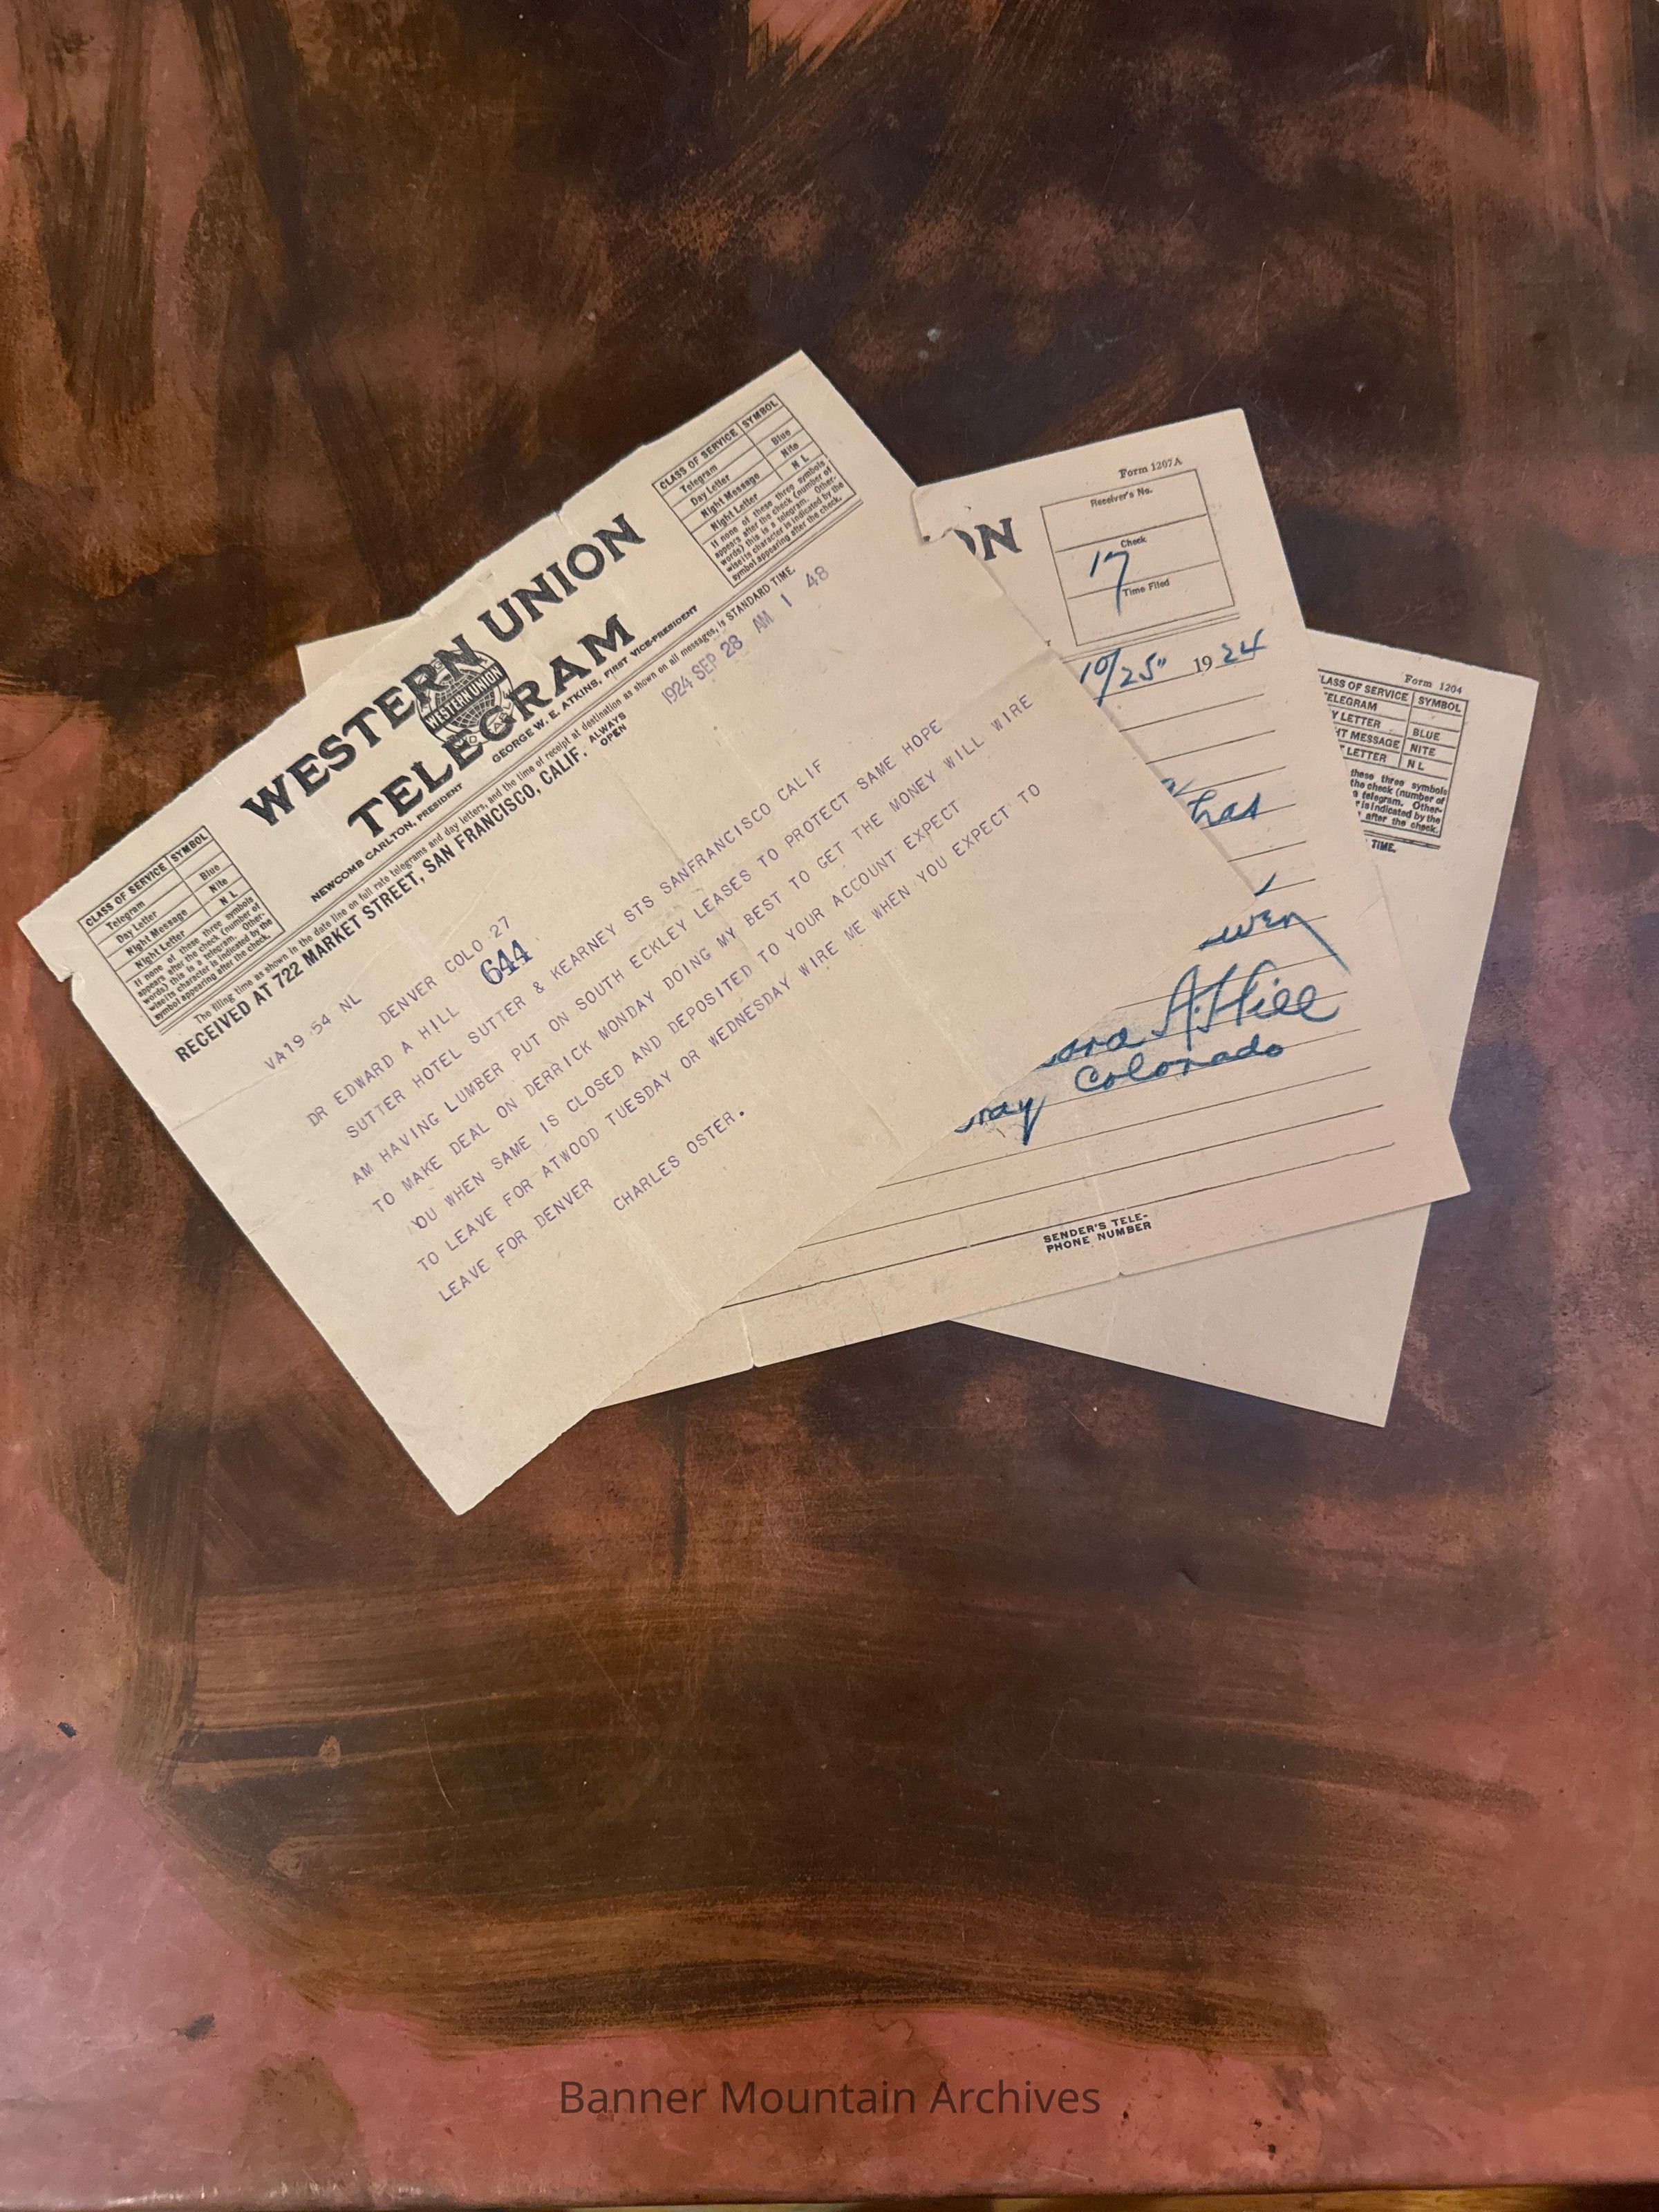 CLASS OF SERVICE SYMBOL
Telegram
Day Letter Blue
Night Message Nite
Night Letter N L
If none of these three symbols
appears after the check (number of
words) this is a telegram. Other-
wise its character is indicated by the
symbol appearing after the check.
WESTERN UNION
WESTERN UNION
TELEGRAM
NEWCOMB CARLTON, PRESIDENT GEORGE W. E. ATKINS, FIRST VICE-PRESIDENT
CLASS OF SERVICE SYMBOL
Telegram
Day Letter Blue
Night Message Nite
Night Letter N L
If none of these three symbols
appears after the check (number of
words) this is a telegram. Other-
wise its character is indicated by the
symbol appearing after the check.
The filing time as shown in the date line on full rate telegrams and day letters, and the time of receipt at destination as shown on all messages, is STANDARD TIME.
RECEIVED AT 722 MARKET STREET, SAN FRANCISCO, CALIF. ALWAYS
OPEN
1924 SEP 28 AM 1 48
VA19 54 NL
DENVER COLO 27
644
DR EDWARD A HILL
SUTTER HOTEL SUTTER & KEARNEY STS SANFRANCISCO CALIF
AM HAVING LUMBER PUT ON SOUTH ECKLEY LEASES TO PROTECT SAME HOPE
TO MAKE DEAL ON DERRICK MONDAY DOING MY BEST TO GET THE MONEY WILL WIRE
YOU WHEN SAME IS CLOSED AND DEPOSITED TO YOUR ACCOUNT EXPECT
TO LEAVE FOR ATWOOD TUESDAY OR WEDNESDAY WIRE ME WHEN YOU EXPECT TO
LEAVE FOR DENVER
CHARLES OSTER.
ON
Form 1207A
Receiver's No.
Check
17
Time Filed
10/25" 1924
has
A. Hill
Colorado
SENDER'S TELE-
PHONE NUMBER
Form 1204
LASS OF SERVICE SYMBOL
ELEGRAM
Y LETTER BLUE
HT MESSAGE NITE
LETTER N L
these three symbols
the check (number of
telegram. Other-
is indicated by the
after the check.
TIME.
Banner Mountain Archives